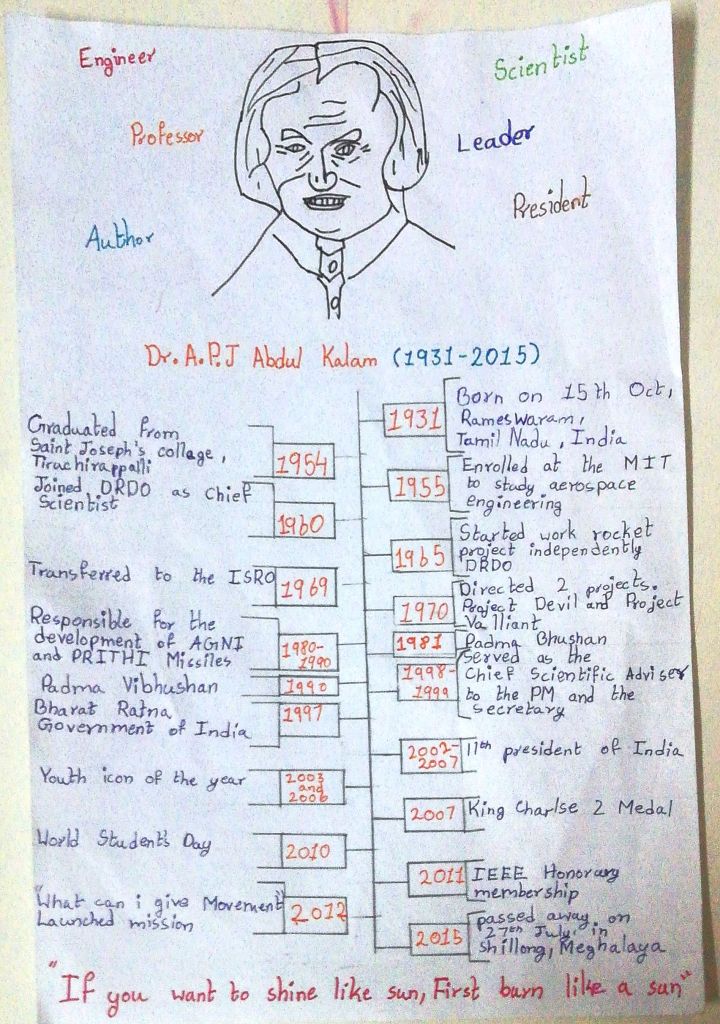 Engineer
Scientist
Professor
Leader
President
Author
Dr. A.P.J Abdul Kalam (1931-2015)
1931
Born on 15th Oct,
Rameswaram,
Tamil Nadu, India
Graduated from
Saint Joseph's collage,
Tiruchirappalli
1954
1955
Enrolled at the MIT
to study aerospace
engineering
Joined DRDO as chief
Scientist
1960
1965
Started work rocket
project independently
DRDO
Transferred to the ISRO
1969
1970
Directed 2 projects.
Project Devil and Project
Valliant
Responsible for the
development of AGNI
and PRITHI Missiles
1980-
1990
1981
Padma Bhushan
Padma Vibhushan
1990
1998-
1999
Served as the
Chief Scientific Adviser
to the PM and the
secretary
Bharat Ratna
Government of India
1997
2002-
2007
11th president of India
Youth icon of the year
2003
and
2006
2007
King Charlse 2 Medal
World Student's Day
2010
2011
IEEE Honorary
membership
"What can i give Movement"
Launched mission
2012
2015
passed away on
27th July in
Shillong, Meghalaya
"If you want to shine like sun, First burn like a sun"